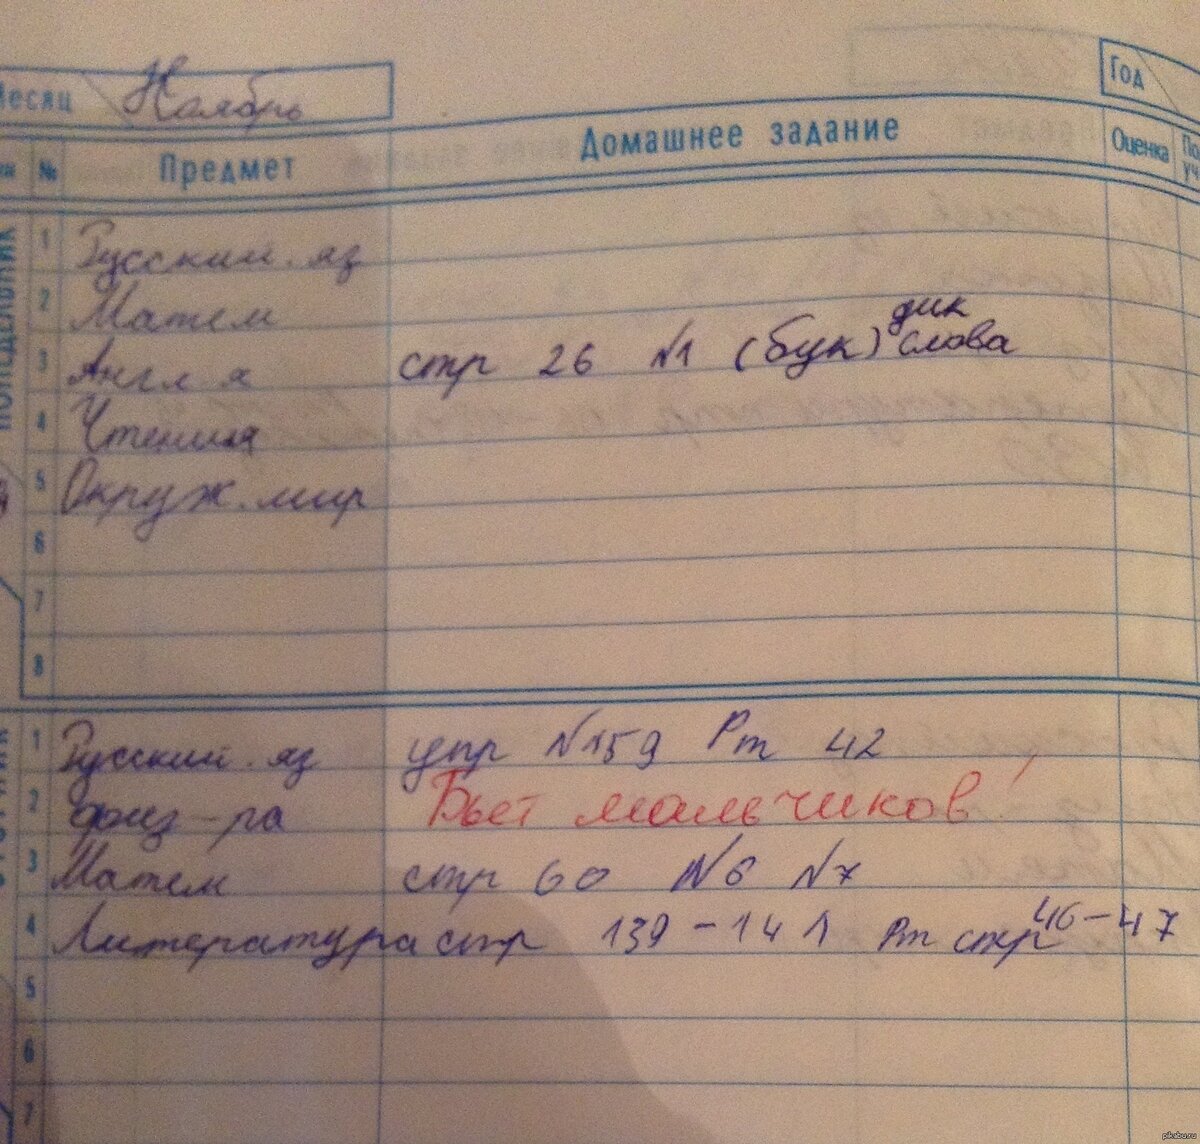 Месяц Ноябрь Год
№ Предмет Домашнее задание Оценка
ПОНЕДЕЛЬНИК
1 Русский. яз
2 Матем
3 Англ я стр 26 №1 (бук) дик слова
4 Чтения
5 Окруж. мир
6
7
8
1 Русский. яз упр №159 Рт 42
2 физ-ра Бьет мальчиков!
3 Матем стр 60 №6 №7
4 Литература стр 139-141 Рт стр 46-47
5
6
7
pikabu.ru